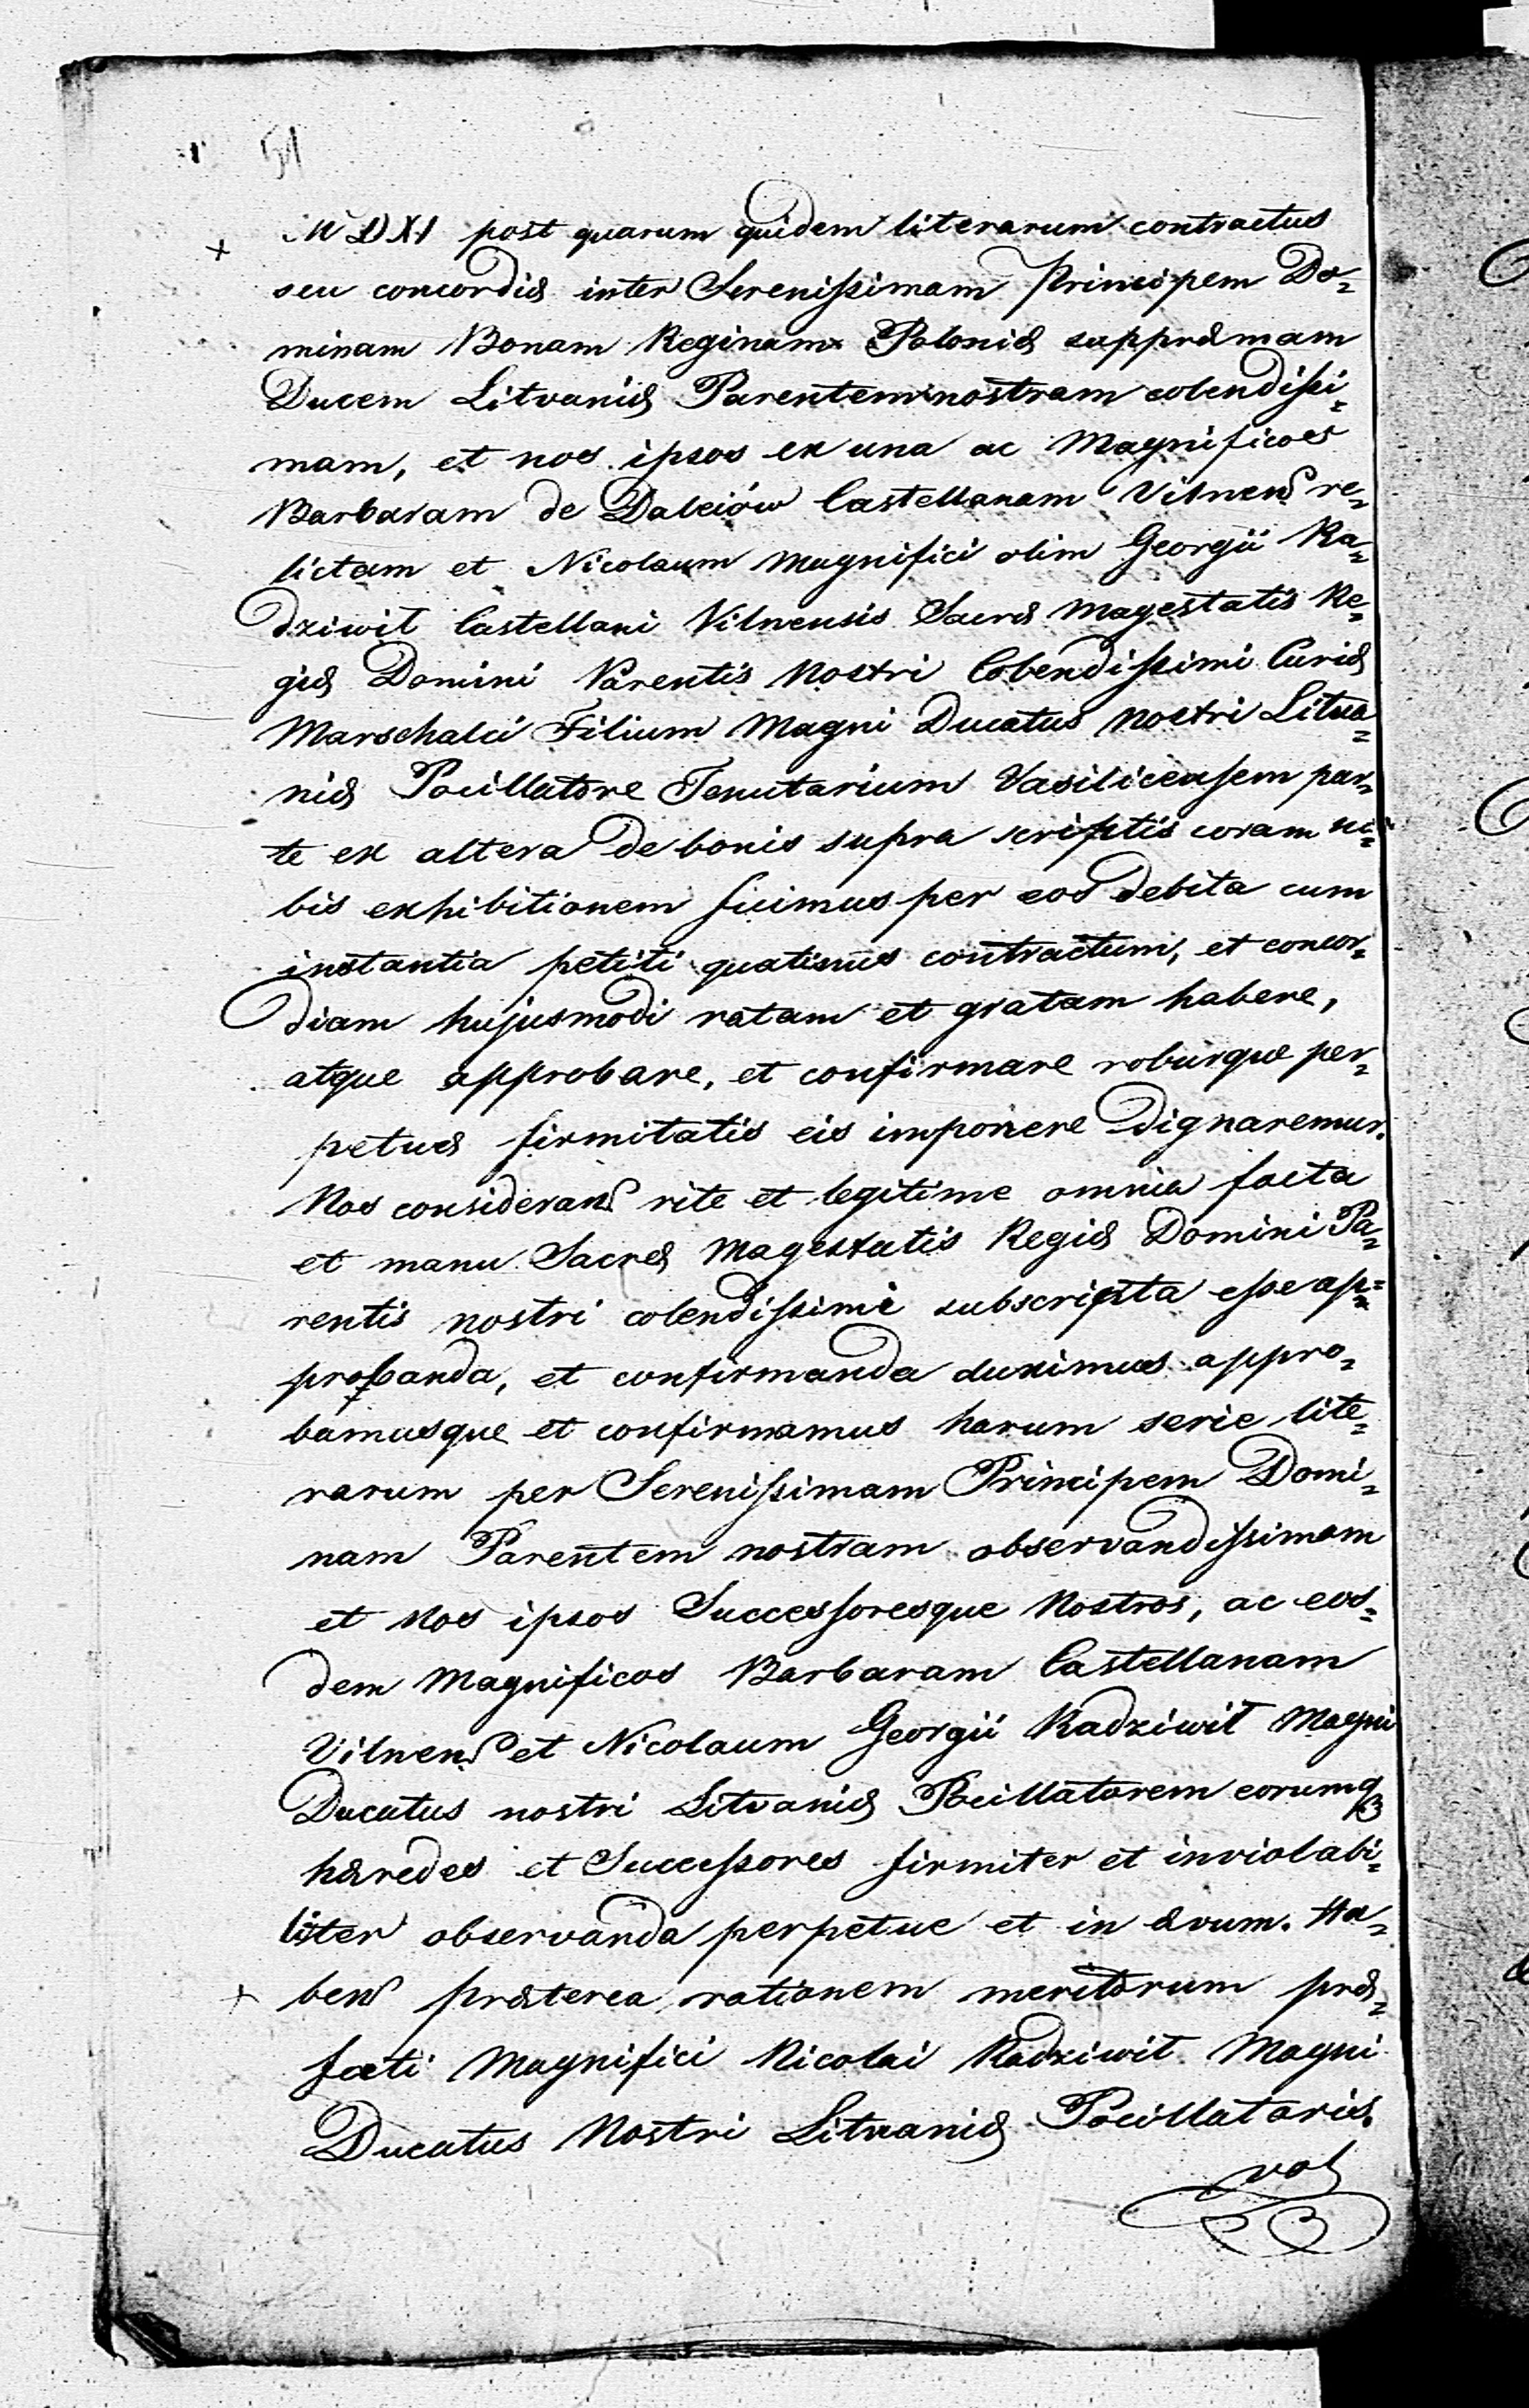 51
MDXI post quarum quidem literarum contractus
seu concordiæ inter Serenissimam Principem Do=
minam Bonam Reginam Poloniæ suppræmam
Ducem Litvaniæ Parentem nostram colendissi=
mam, et nos ipsos ex una ac Magnificos
Barbaram de Daleiów Castellanam Vilnens re=
lictam et Nicolaum Magnifici olim Georgii Ra=
dziwił Castellani Vilnensis Sacræ Magestatis Re=
giæ Domini Parentis Nostri Colendissimi Curiæ
Marschalci Filium Magni Ducatus Nostri Litva=
niæ Pocillatore Tenutarium Vasilicensem par=
te ex altera de bonis supra scriptis coram no=
bis exhibitionem fuimus per eos debita cum
instantia petiti quatinus contractum, et concor=
diam hujusmodi ratam et gratam habere,
atque approbare, et confirmare roburque per=
petuæ firmitatis eis imponere dignaremur.
Nos considerans rite et legitime omnia facta
et manu Sacræ Magestatis Regiæ Domini Pa=
rentis nostri colendissimi subscripta esse ap=
probanda, et confirmanda duximus appro=
bamusque et confirmamus harum serie lite=
rarum per Serenissimam Principem Domi=
nam Parentem nostram observandissimam
et Nos ipsos Successoresque Nostros, ac eos=
dem Magnificos Barbaram Castellanam
Vilnens et Nicolaum Georgii Radziwił Magni
Ducatus nostri Litvaniæ Pocillatorem eorumq3
hæredes et Successores firmiter et inviolabi=
liter observanda perpetue et in ævum. Ha=
bens præterea rationem meritorum præ=
facti Magnifici Nicolai Radziwił Magni
Ducatus Nostri Litvaniæ Pocillatoris.